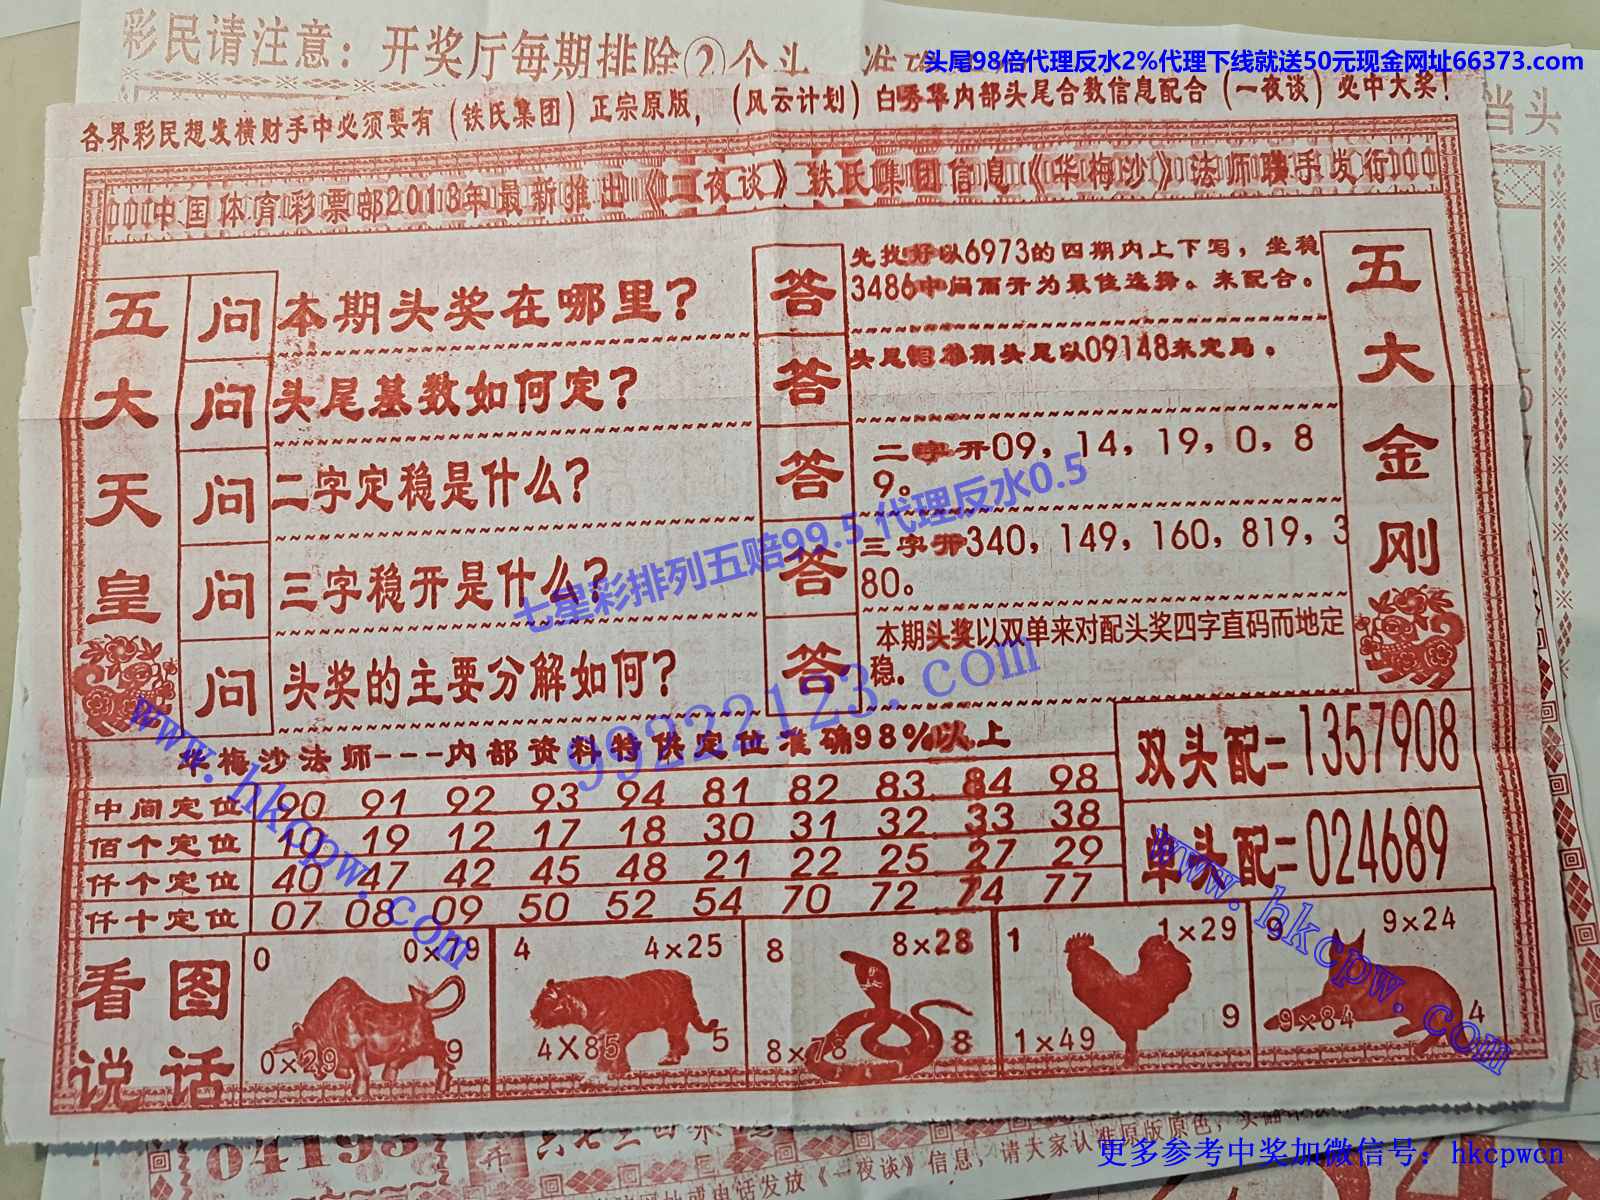 彩民请注意：开奖厅每期排除②个头
头尾98倍代理反水2%代理下线就送50元现金网址66373.com
当头
各界彩民想发横财手中必须要有（铁氏集团）正宗原版，（风云计划）白秀华内部头尾合数信息配合（一夜谈）必中大奖！
中国体育彩票部2013年最新推出《一夜谈》铁氏集团信息《华梅沙》法师联手发行
五大天皇
问 本期头奖在哪里？
答 先找好以6973的四期内上下写，坐稳
3486中间而开为最佳选择。来配合。
问 头尾基数如何定？
答 头尾 期头尾以09148来定局。
问 二字定稳是什么？
答 二字开09，14，19，0，8
9。
问 三字稳开是什么？
答 三字开340，149，160，819，3
80。
问 头奖的主要分解如何？
答 本期头奖以双单来对配头奖四字直码而地定
稳。
五大金刚
七星彩排列五赔99.5 代理反水0.5
99222123.com
www.hkcpw.com
华梅沙法师---内部资料特供定位准确98%以上
中间定位 90 91 92 93 94 81 82 83 84 98
佰个定位 10 19 12 17 18 30 31 32 33 38
仟个定位 40 47 42 45 48 21 22 25 27 29
仟十定位 07 08 09 50 52 54 70 72 74 77
双头配=1357908
单头配=024689
www.hkcpw.com
看图
说话
0 0×79
0×29 9
4 4×25
4×85 5
8 8×28
8×78 8
1 1×29
1×49 9
9 9×24
9×84 4
04193
信息，请大家认准原版原色，
电话发放《一夜谈》
更多参考中奖加微信号：hkcpwcn